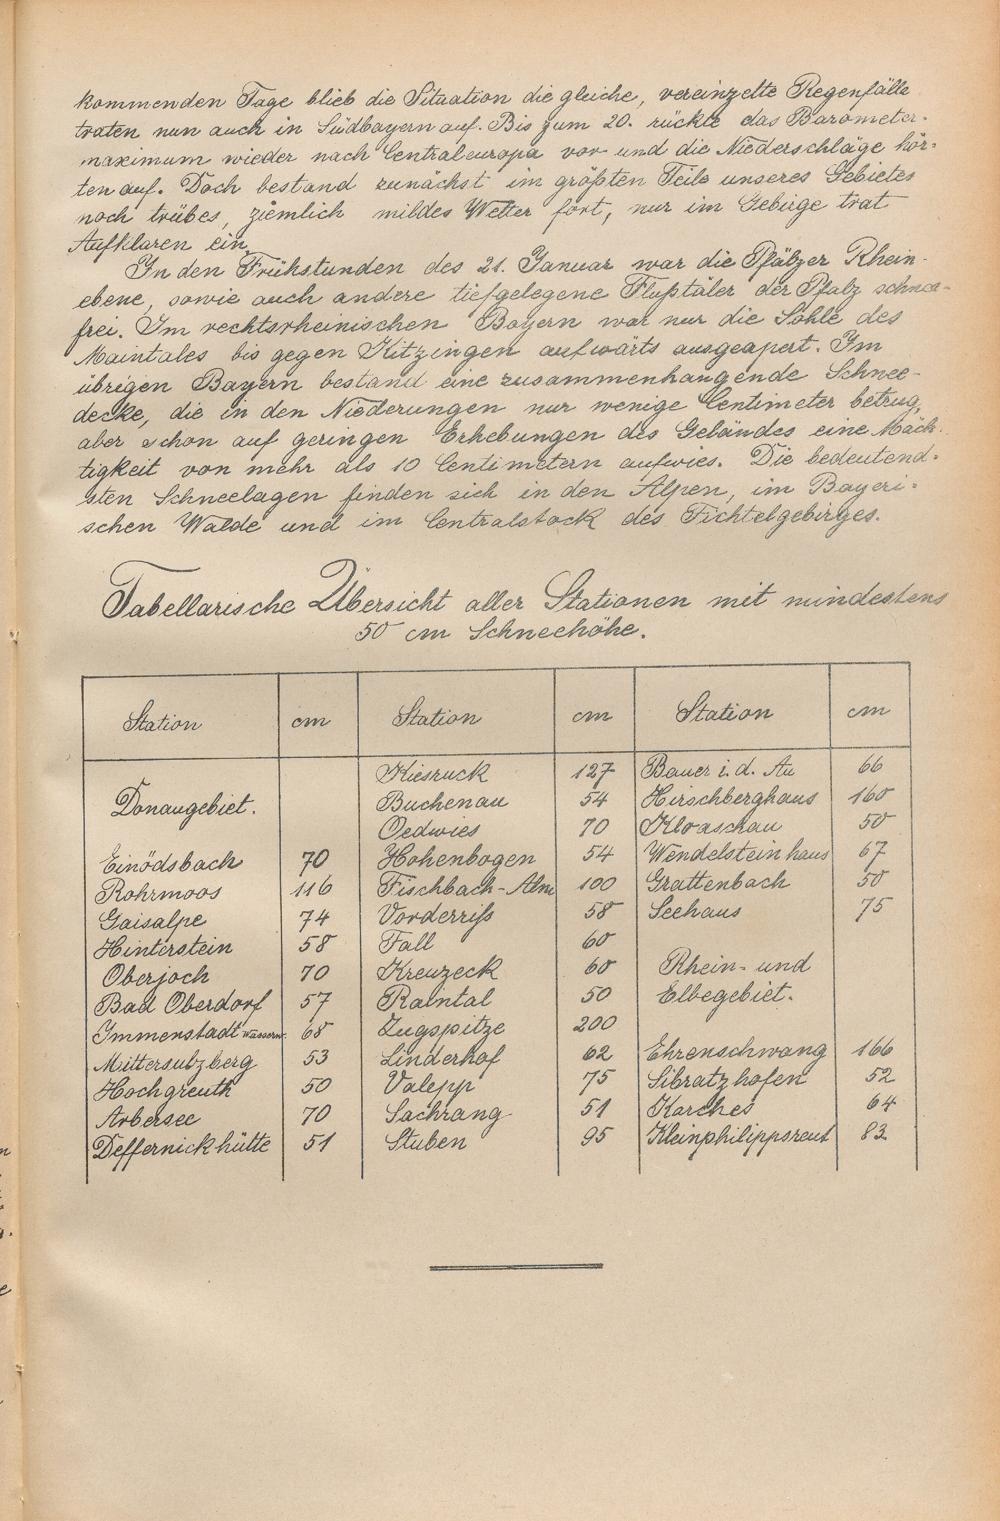 kommenden Tage blieb die Situation die gleiche, vereinzelte Regenfälle
traten nun auch in Südbayern auf. Bis zum 20. rückte das Barometer-
maximum wieder nach Centraleuropa vor und die Niederschläge hör-
ten auf. Doch bestand zunächst im größten Teile unseres Gebietes
noch trübes, ziemlich mildes Wetter fort, nur im Gebirge trat
Aufklaren ein.
In den Frühstunden des 21. Januar war die Pfälzer Rhein-
ebene, sowie auch andere tiefgelegene Flußtäler der Pfalz schnee-
frei. Im rechtsrheinischen Bayern war nur die Sohle des
Maintales bis gegen Kitzingen aufwärts ausgeapert. Im
übrigen Bayern bestand eine zusammenhangende Schnee-
decke, die in den Niederungen nur wenige Centimeter betrug,
aber schon auf geringen Erhebungen des Geländes eine Mäch-
tigkeit von mehr als 10 Centimetern aufwies. Die bedeutend-
sten Schneelagen finden sich in den Alpen, im Bayeri-
schen Walde und im Centralstock des Fichtelgebirges.
Tabellarische Übersicht aller Stationen mit mindestens
50 cm Schneehöhe.
Station cm Station cm Station cm
Kiesruck 127 Bauer i. d. Au 66
Donaugebiet. Buchenau 54 Hirschberghaus 160
Oedwies 70 Kloaschau 50
Einödsbach 70 Hohenbogen 54 Wendelsteinhaus 67
Rohrmoos 116 Fischbach-Alm 100 Grattenbach 50
Gaisalpe 74 Vorderriß 58 Seehaus 75
Hinterstein 58 Fall 60
Oberjoch 70 Kreuzeck 60 Rhein- und
Bad Oberdorf 57 Raintal 50 Elbegebiet.
Immenstadt wasserw. 68 Zugspitze 200
Mittersulzberg 53 Linderhof 62 Ehrenschwang 166
Hochgreuth 50 Valepp 75 Sibratzhofen 52
Arbersee 70 Sachrang 51 Karches 64
Deffernickhütte 51 Stuben 95 Kleinphilippsreut 83